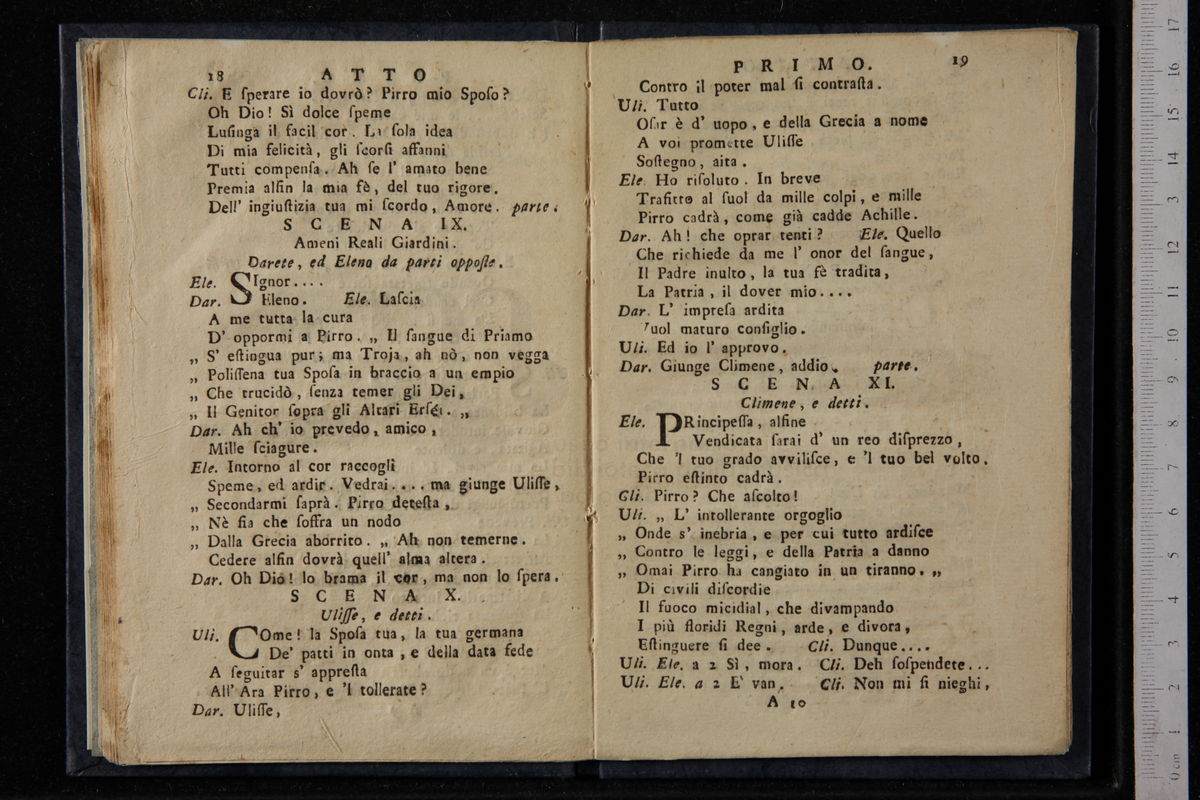 18 ATTO
Cli. E ſperare io dovrò? Pirro mio Spoſo?
Oh Dio! Sì dolce ſpeme
Luſinga il facil cor. La ſola idea
Di mia felicità, gli ſcorſi affanni
Tutti compenſa. Ah ſe l' amato bene
Premia alfin la mia fè, del tuo rigore.
Dell' ingiuſtizia tua mi ſcordo, Amore. parte.
SCENA IX.
Ameni Reali Giardini.
Darete, ed Eleno da parti oppoſte.
Ele. SIgnor....
Dar. Eleno. Ele. Laſcia
A me tutta la cura
D' oppormi a Pirro. „ Il ſangue di Priamo
„ S' eſtingua pur; ma Troja, ah nò, non vegga
„ Poliſſena tua Spoſa in braccio a un empio
„ Che trucidò, ſenza temer gli Dei,
„ Il Genitor ſopra gli Altari Erſéi. „
Dar. Ah ch' io prevedo, amico,
Mille ſciagure.
Ele. Intorno al cor raccogli
Speme, ed ardir. Vedrai.... ma giunge Uliſſe,
„ Secondarmi ſaprà. Pirro deteſta,
„ Nè fia che ſoffra un nodo
„ Dalla Grecia aborrito. „ Ah non temerne.
Cedere alfin dovrà quell' alma altera.
Dar. Oh Dio! lo brama il cor, ma non lo ſpera.
SCENA X.
Uliſſe, e detti.
Uli. COme! la Spoſa tua, la tua germana
De' patti in onta, e della data fede
A ſeguitar s' appreſta
All' Ara Pirro, e 'l tollerate?
Dar. Uliſſe,
PRIMO. 19
Contro il poter mal ſi contraſta.
Uli. Tutto
Oſar è d' uopo, e della Grecia a nome
A voi promette Uliſſe
Soſtegno, aita.
Ele. Ho riſoluto. In breve
Trafitto al ſuol da mille colpi, e mille
Pirro cadrà, come già cadde Achille.
Dar. Ah! che oprar tenti? Ele. Quello
Che richiede da me l' onor del ſangue,
Il Padre inulto, la tua fè tradita,
La Patria, il dover mio....
Dar. L' impreſa ardita
Vuol maturo conſiglio.
Uli. Ed io l' approvo.
Dar. Giunge Climene, addio. parte.
SCENA XI.
Climene, e detti.
Ele. PRincipeſſa, alfine
Vendicata ſarai d' un reo diſprezzo,
Che 'l tuo grado avviliſce, e 'l tuo bel volto.
Pirro eſtinto cadrà.
Cli. Pirro? Che aſcolto!
Uli. „ L' intollerante orgoglio
„ Onde s' inebria, e per cui tutto ardiſce
„ Contro le leggi, e della Patria a danno
„ Omai Pirro ha cangiato in un tiranno. „
Di civili diſcordie
Il fuoco micidial, che divampando
I più floridi Regni, arde, e divora,
Eſtinguere ſi dee. Cli. Dunque....
Uli. Ele. a 2 Sì, mora. Cli. Deh ſoſpendete...
Uli. Ele. a 2 E' van. Cli. Non mi ſi nieghi,
A 10